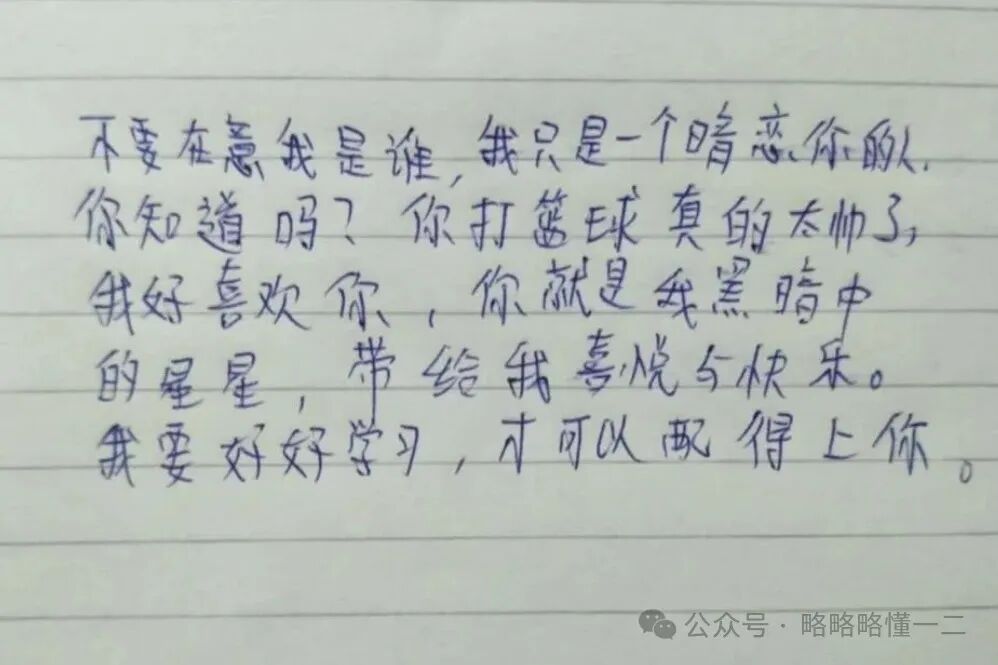 不要在意我是谁,我只是一个暗恋你的人.
你知道吗?你打篮球真的太帅了,
我好喜欢你,你就是我黑暗中
的星星,带给我喜悦与快乐。
我要好好学习,才可以配得上你。
公众号·略略略懂一二